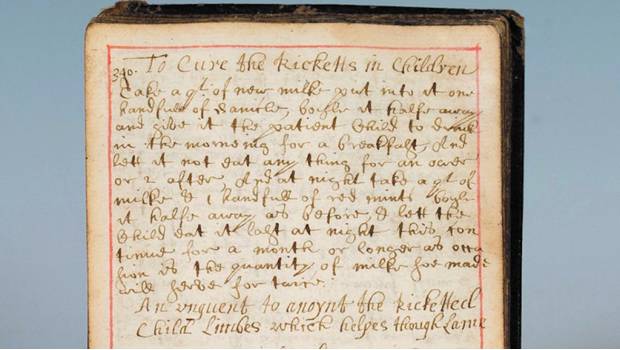 To Cure the Ricketts in Children
340. Take a qt. of new milke put into it one
handfull of Sanicle, boyle it halfe away
and give it the patient Child to drink
in the morneing for a breakfast, And
lett it not eat any thing for an ower
or 2 after, And at night take a qt. of
milke & 1 handfull of red mints boyle
it halfe away as before, & lett the
Child eat it last at night this con
tinue for a month or longer as occa
sion is the quantity of milke soe made
will serve for twice.
An unguent to anoynt the Ricketted
Child Limbes which helpes though Lame